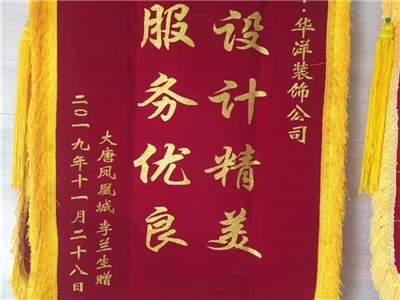 华洋装饰公司
设计精美
服务优良
大唐凤凰城 李兰生赠
二〇一九年十一月二十八日